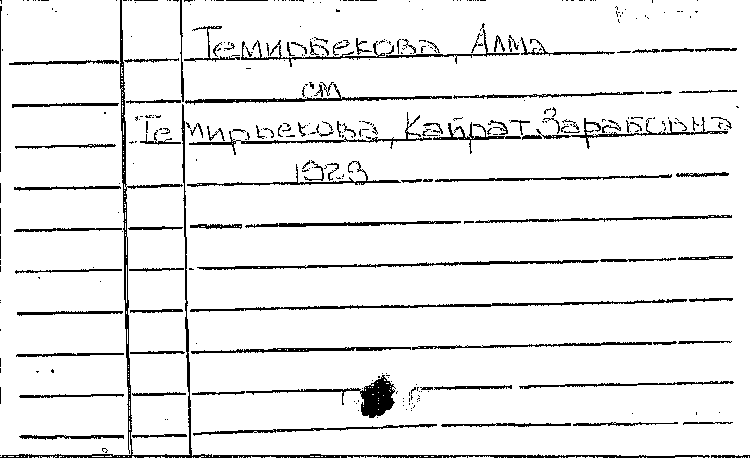 Темирбекова, Алма
см
Темирбекова, Кайрат Зарабовна
1929